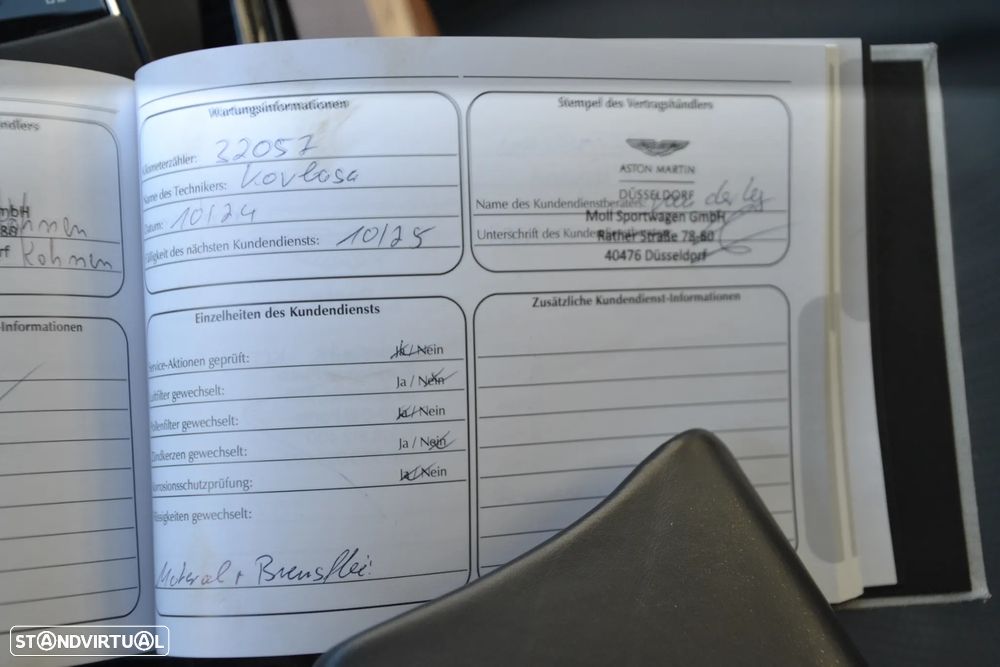 ndlers
mbH
Kohmen
rf Kohmen
-Informationen
Wartungsinformationen
Kilometerzähler: 32057
Name des Technikers:
Datum: 10/24
Fälligkeit des nächsten Kundendiensts: 10/25
Stempel des Vertragshändlers
ASTON MARTIN
DÜSSELDORF
Name des Kundendienstberaters:
Moll Sportwagen GmbH
Unterschrift des
Rather Straße 78-80
40476 Düsseldorf
Einzelheiten des Kundendiensts
Service-Aktionen geprüft: Ja / Nein
Luftfilter gewechselt: Ja / Nein
Pollenfilter gewechselt: Ja / Nein
Zündkerzen gewechselt: Ja / Nein
Korrosionsschutzprüfung: Ja / Nein
Flüssigkeiten gewechselt:
Zusätzliche Kundendienst-Informationen
STANDVIRTUAL